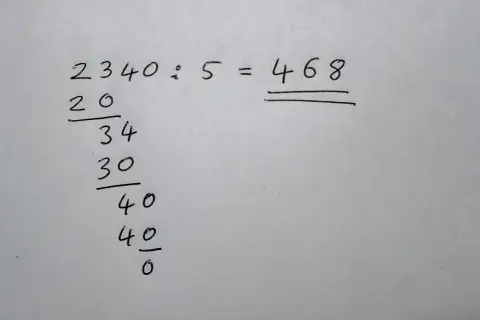 2340 : 5 = 468
20
34
30
40
40
0